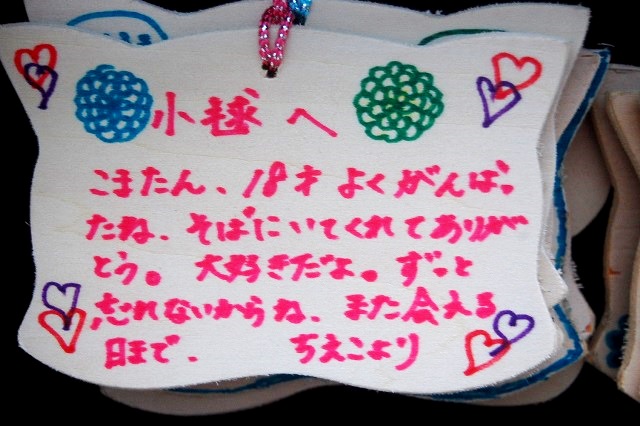 小毬へ
こまたん、18才よくがんばっ
たね、そばにいてくれてありが
とう。大好きだよ。ずっと
忘れないからね、また会える
日まで、 ちえこより